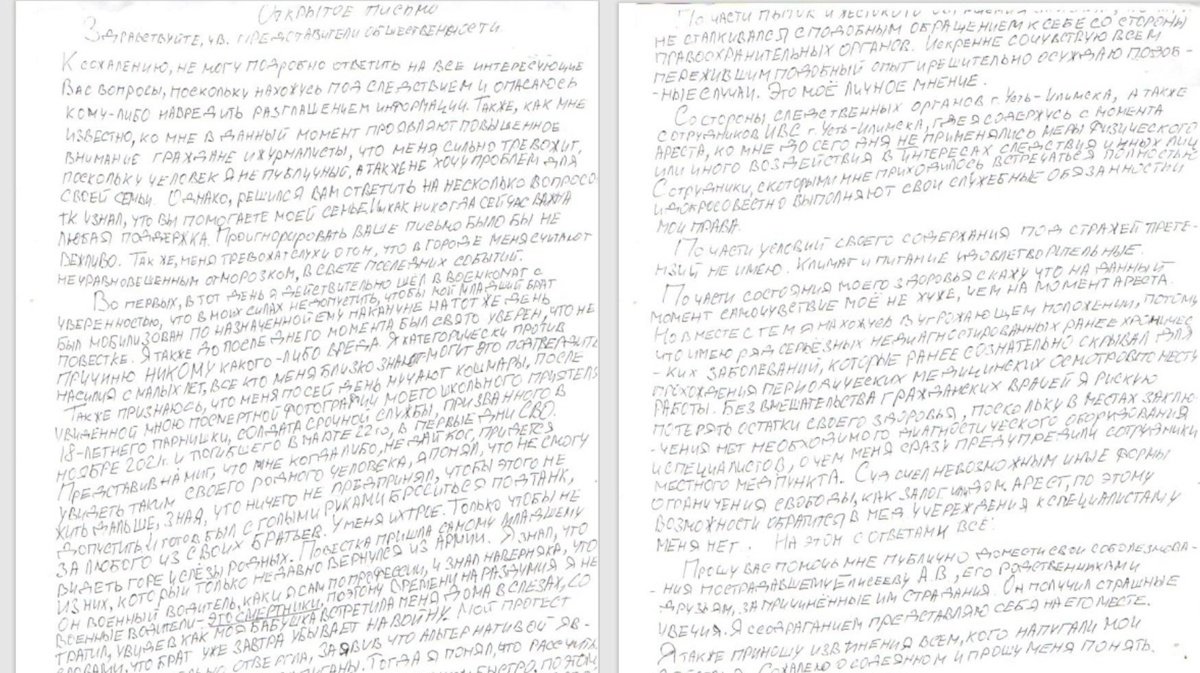 Открытое письмо
Здравствуйте, ув. представители общественности.
К сожалению, не могу подробно ответить на все интересующие
Вас вопросы, поскольку нахожусь под следствием и опасаюсь
кому-либо навредить разглашением информации. Также, как мне
известно, ко мне в данный момент проявляют повышенное
внимание граждане и журналисты, что меня сильно тревожит,
поскольку человек я не публичный, а также не хочу проблем для
своей семьи. Однако, решился Вам ответить на несколько вопросо
тк узнал, что Вы помогаете моей семье. И как никогда сейчас важна
любая поддержка. Проигнорировать ваше письмо было бы не
вежливо. Так же, меня тревожат слухи о том, что в городе меня считают
неуравновешенным отморозком, в свете последних событий.
Во первых, в тот день я действительно шел в военкомат с
уверенностью, что в моих силах не допустить, чтобы мой младший брат
был мобилизован по назначенной ему накануне на тот же день
повестке. Я также до последнего момента был свято уверен, что не
причиню НИКОМУ какого-либо вреда. Я категорически против
насилия с малых лет, все кто меня близко знают могут это подтвердить
Также признаюсь, что меня по сей день мучают кошмары, после
увиденной мною посмертной фотографии моего школьного приятеля
18-летнего парнишки, солдата срочной службы, призванного в
ноябре 2021г. и погибшего в марте 22го, в первые дни СВО.
Представив на миг, что мне когда либо, не дай Бог, придется
увидеть таким своего родного человека, я понял, что не смогу
жить дальше, зная, что ничего не предпринял, чтобы этого не
допустить. И готов был с голыми руками броситься под танк,
за любого из своих братьев. У меня их трое. Только чтобы не
видеть горе и слёзы родных. Повестка пришла самому младшему
из них, который только недавно вернулся из армии. Я знал, что
он военный водитель, как и я сам по профессии, и знал наверняка, что
военные водители - это смертники, поэтому времени на раздумия я не
тратил, увидев как моя бабушка встретила меня дома в слезах, со
словами, что брат уже завтра убывает на войну. Мой протест
отвергла, заявив что альтернативой яв-
Тогда я понял, что рассчит
быстро, поэтом
По части пыток и жестокого обращения
не сталкивался с подобным обращением к себе со стороны
правоохранительных органов. Искренне сочувствую всем
пережившим подобный опыт и решительно осуждаю подоб-
-ные случаи. Это моё личное мнение.
Со стороны следственных органов г. Усть-Илимска, а также
сотрудников ИВС г. Усть-Илимска, где я содержусь с момента
ареста, ко мне до сего дня не применялись меры физического
или иного воздействия в интересах следствия и иных лиц
Сотрудники, с которыми мне приходилось встречаться полностью
и добросовестно выполняют свои служебные обязанности и
мои права.
По части условий своего содержания под стражей прете-
нзий не имею. Климат и питание удовлетворительные.
По части состояния моего здоровья скажу что на данный
момент самочувствие моё не хуже, чем на момент ареста.
Но вместе с тем я нахожусь в угрожающем положении, потому
что имею ряд серьёзных недиагностированных ранее хроничес
- ких заболеваний, которые ранее сознательно скрывал для
прохождения периодических медицинских осмотров по месту
работы. Без вмешательства гражданских врачей я рискую
потерять остатки своего здоровья, поскольку в местах заклю-
-чения нет необходимого диагностического оборудования
и специалистов, о чем меня сразу предупредили сотрудники
местного медпункта. Суд счел невозможным иные формы
ограничения свободы, как залог или дом. арест, по этому
возможности обратится в мед учереждения к специалистам у
меня нет. На этом с ответами всё.
Прошу вас помочь мне публично донести свои соболезнова-
- ния пострадавшему Елисееву А В, его родственникам и
друзьям, за причинённые им страдания. Он получил страшные
увечия. Я с содраганием представляю себя на его месте.
Я также приношу извинения всем, кого напугали мои
Сожалею о содеянном и прошу меня понять.